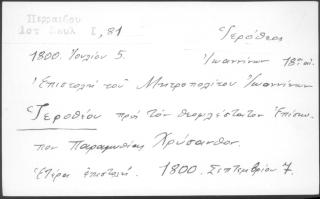 Περραιβού
Ἱερόθεος
1800. Ἰουλίου 5. Ἰωαννίνων 18ος αἰ.
Ἐπιστολὴ τοῦ Μητροπολίτου Ἰωαννίνων
Ἱεροθέου πρὸς τὸν θεοφιλέστατον Ἐπίσκο-
πον Παραμυθίας Χρύσανθον.
Ἑτέρα ἐπιστολή. 1800. Σεπτεμβρίου 7.